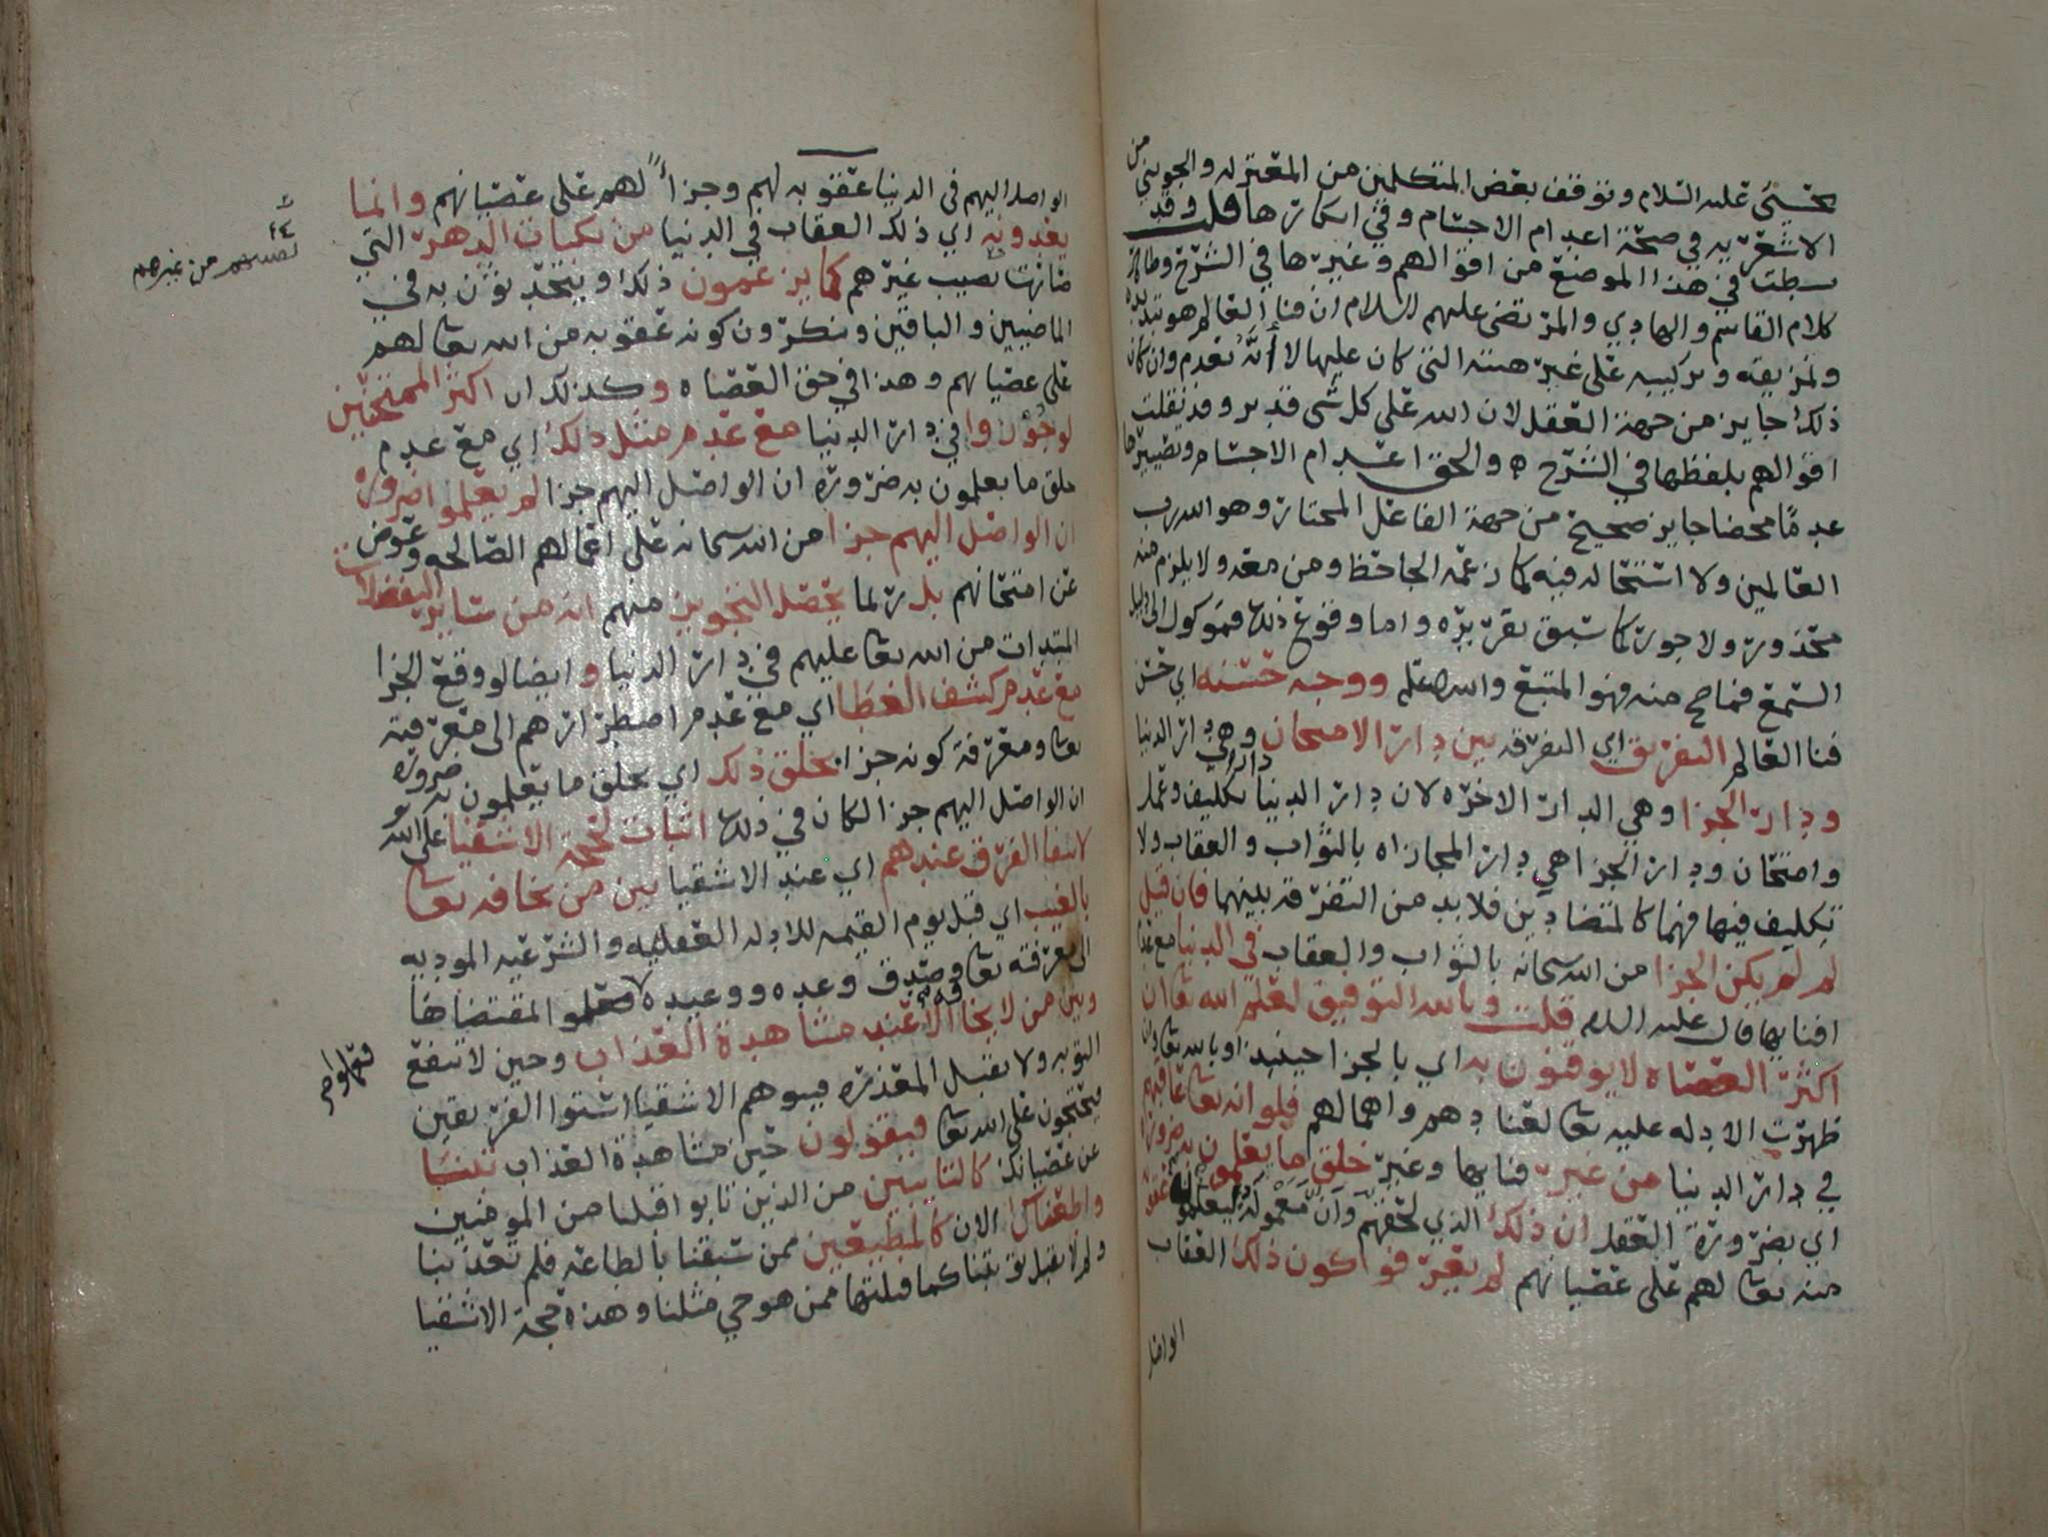 يحيى عليه السلام وتوقف بعض المتكلمين من المعتزله والجويني من
الاشعريه في صحة اعدام الاجسام وفي امكانها قلت وقد
بسطت في هذا الموضع من اقوالهم وغيرها في الشرح وظاهر
كلام القاسم والهادي والمرتضى عليهم السلام ان فنا العالم هو تبديده
وتمزيقه وتركيبه على غير هيئته التي كان عليها لا أنَّه تعدم وان كان
ذلك جايز من جهة العقل لان الله على كل شي قدير وقد نقلت
اقوالهم بلفظها في الشرح ه والحق اعدام الاجسام وتصييرها
عدمًا محضا جايز صحيح من جهة الفاعل المختار وهو الله رب
العالمين ولا استحاله فيه كما زعمه الجاحظ ومن معه ولا يلزم منه
محذور ولا جور كما سبق تقريره واما وقوع ذلك فموكول الى دليل
السمع فما صح منه فهو المتبع والله اعلم ووجه حسنه اي حسن
فنا العالم التفريق اي التفرقه بين دار الامتحان وهي دار الدنيا
ودار الجزا وهي الدار الاخره لان دار الدنيا دار تكليف وعمل
وامتحان ودار الجزا هي دار المجازاه بالثواب والعقاب ولا
تكليف فيها فهما كالمتضادين فلا بد من التفرقه بينهما فان قيل
لم لم يكن الجزا من الله سبحانه بالثواب والعقاب في الدنيا مع عدم
افنايها قال عليه السلام قلت وبالله التوفيق لعلم الله تعا ان
اكثر العصاه لا يوقنون به اي بالجزا حينيذ او بالله تعا وان
ظهرت الادله عليه تعا لعنادهم واهمالهم فلو انه تعا عاقبهم
في دار الدنيا من غير فنايها وغير خلق ما يعلمون به ضرورة
اي بضرورة العقل ان ذلك الذي لحقهم وان معموله ليعلمون عقوبة
منه تعا لهم على عصيانهم لم يعرفوا كون ذلك العقاب
الواصل
الواصل اليهم في الدنيا عقوبه لهم وجزاءً لهم على عصيانهم وانما
يعدونه اي ذلك العقاب في الدنيا من نكبات الدهر التي
مازالت تصيب غيرهم كما يزعمون ذلك او يتحدثون به في
الماضيين والباقين وينكرون كونه عقوبه من الله تعا لهم
على عصيانهم وهذا في حق العصاه وكذلك ان اكثر الممتحنين
لو جُوزوا في دار الدنيا مع عدم مثل ذلك اي مع عدم
خلق ما يعلمون به ضروره ان الواصل اليهم جزا لم يعلموا ضروره
ان الواصل اليهم جزا من الله سبحانه على اعمالهم الصالحه وعوض
عن امتحانهم بل ربما يحصل التجويز منهم انه من ساير التفضلات
المبتدات من الله تعا عليهم في دار الدنيا و ايضا لو وقع الجزا
مع عدم كشف الغطا اي مع عدم اضطرارهم الى معرفته
تعا ومعرفة كونه جزا بخلق ذلك اي بخلق ما يعلمون به ضروره
ان الواصل اليهم جزا لكان في ذلك اثبات لحجة الاشقيا على الله
لانتفا الفرق عندهم اي عند الاشقيا بين من يخافه تعا
بالغيب اي قبل يوم القيمه للادله العقليه والشرعيه الموديه
الى معرفته تعا وصدق وعده ووعيده فعملوا بمقتضاها
وبين من لا يخافه الا عند مشاهدة العذاب وحين لا تنفع
التوبه ولا تقبل المعذره فيوهم الاشقيا استوا الفريقين
فيحتجون على الله تعا فيقولون حين مشاهدة العذاب تبنا
عن عصيانك كالتايبين من الذين تابوا قبلنا من المومنين
واطعناك الان كالمطيعين ممن سبقنا بالطاعه فلم تعذبنا
ولم لا تقبل توبتنا كما قبلتها ممن هو حي مثلنا وهذه حجة الاشقيا
تصيبهم من غيرهم